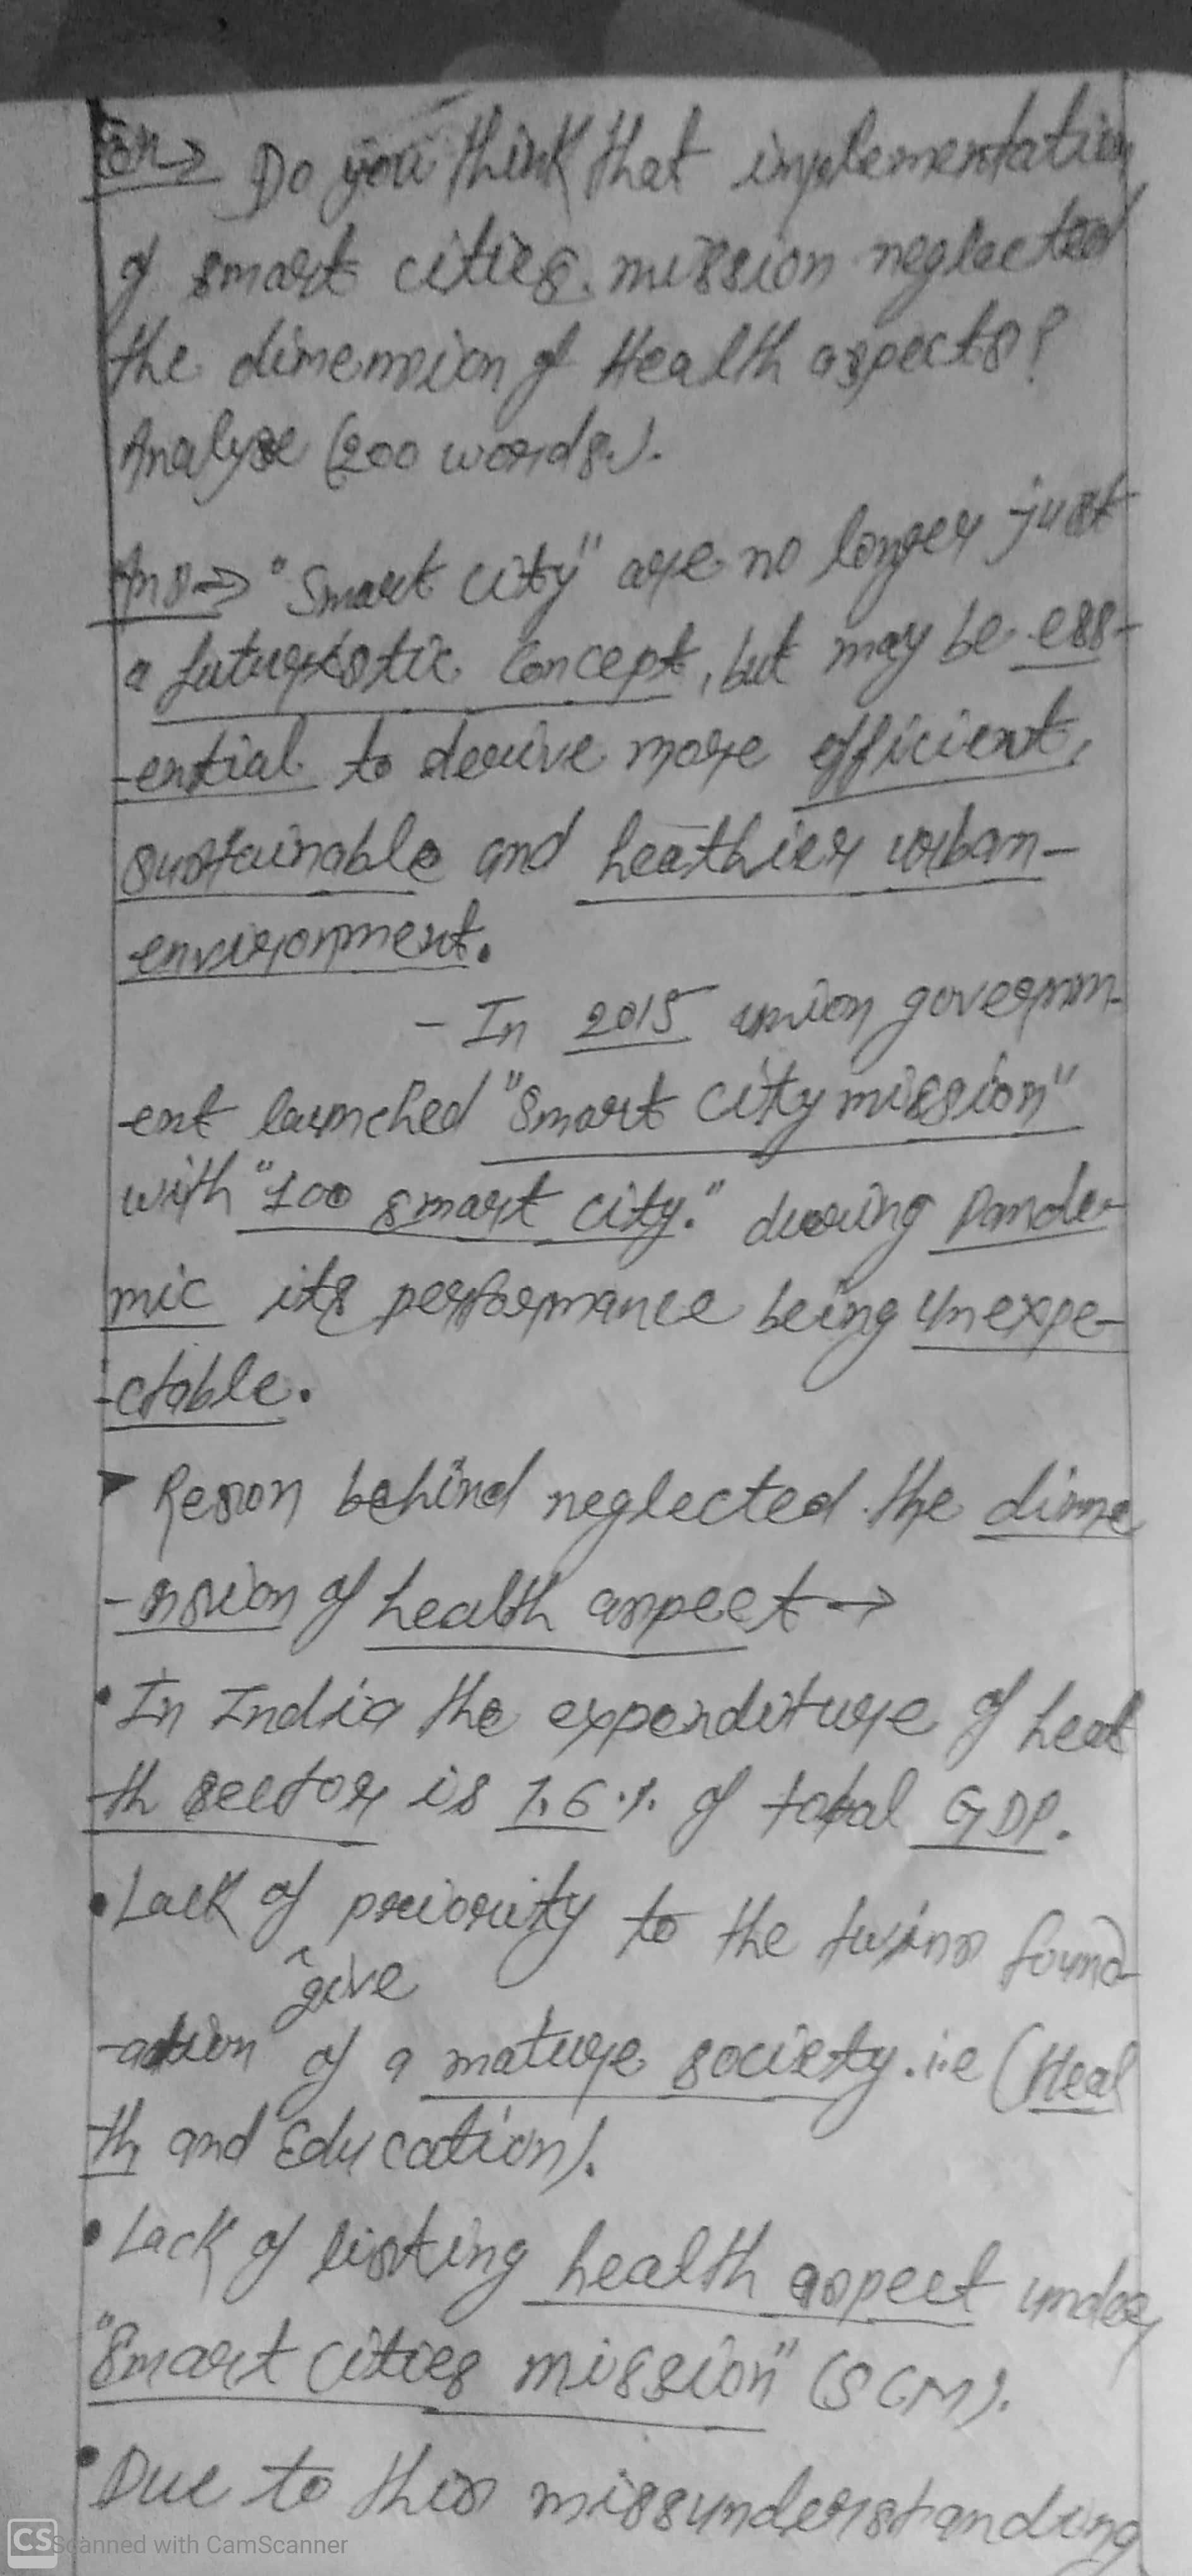 Qn→ Do you think that implementation
of smart cities mission neglected
the dimension of Health aspects?
Analyse (200 words).
Ans→ "Smart city" are no longer just
a futuristic concept, but may be ess-
-ential to derive more efficient,
sustainable and heathier urban-
environment.
- In 2015 union governm-
-ent launched "Smart city mission"
with "100 smart city." during Pande-
mic its performance being unexpe-
-ctable.
Reson behind neglected the dime
-nsion of health aspect →
• In India the expenditure of heal
th sector is 1.6% of total GDP.
• Lack of priority to the twins found-
give
-ation of a mature society. i.e (Heal
th and Education).
• Lack of listing health aspect under
"Smart Cities mission" (SCM).
• Due to this missunderstanding
CS Scanned with CamScanner